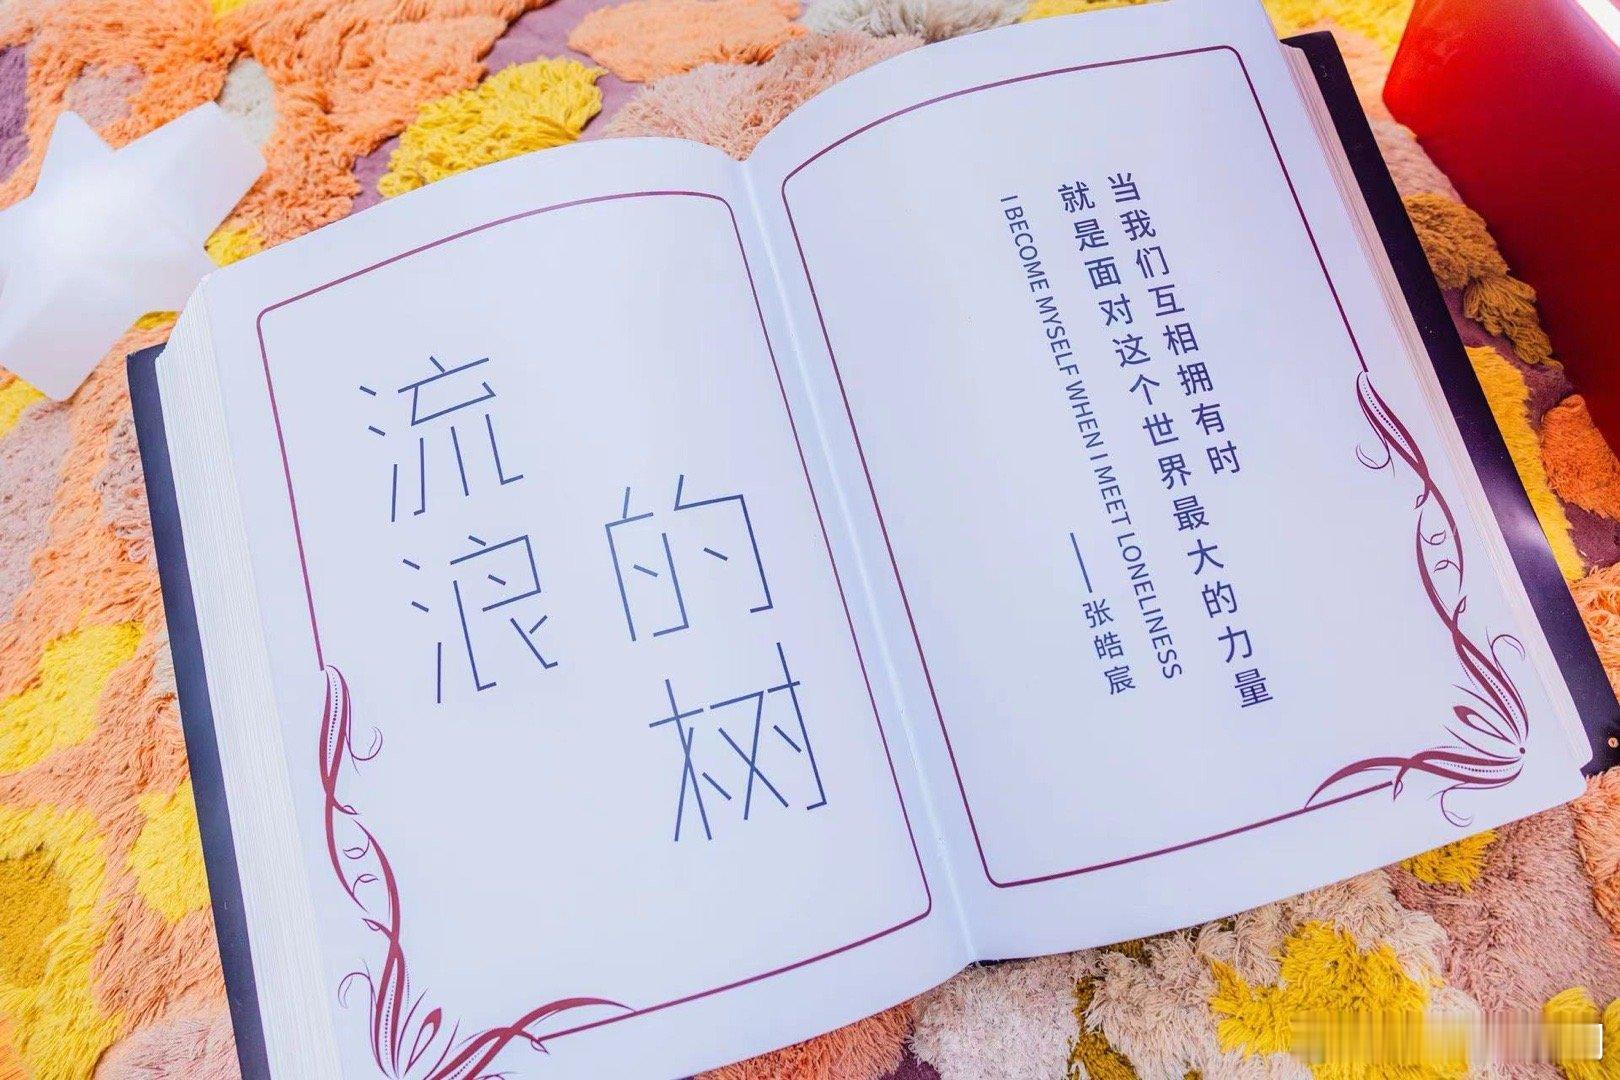 流浪
的树
当我们互相拥有时
就是面对这个世界最大的力量
I BECOME MYSELF WHEN I MEET LONELINESS
——张皓宸